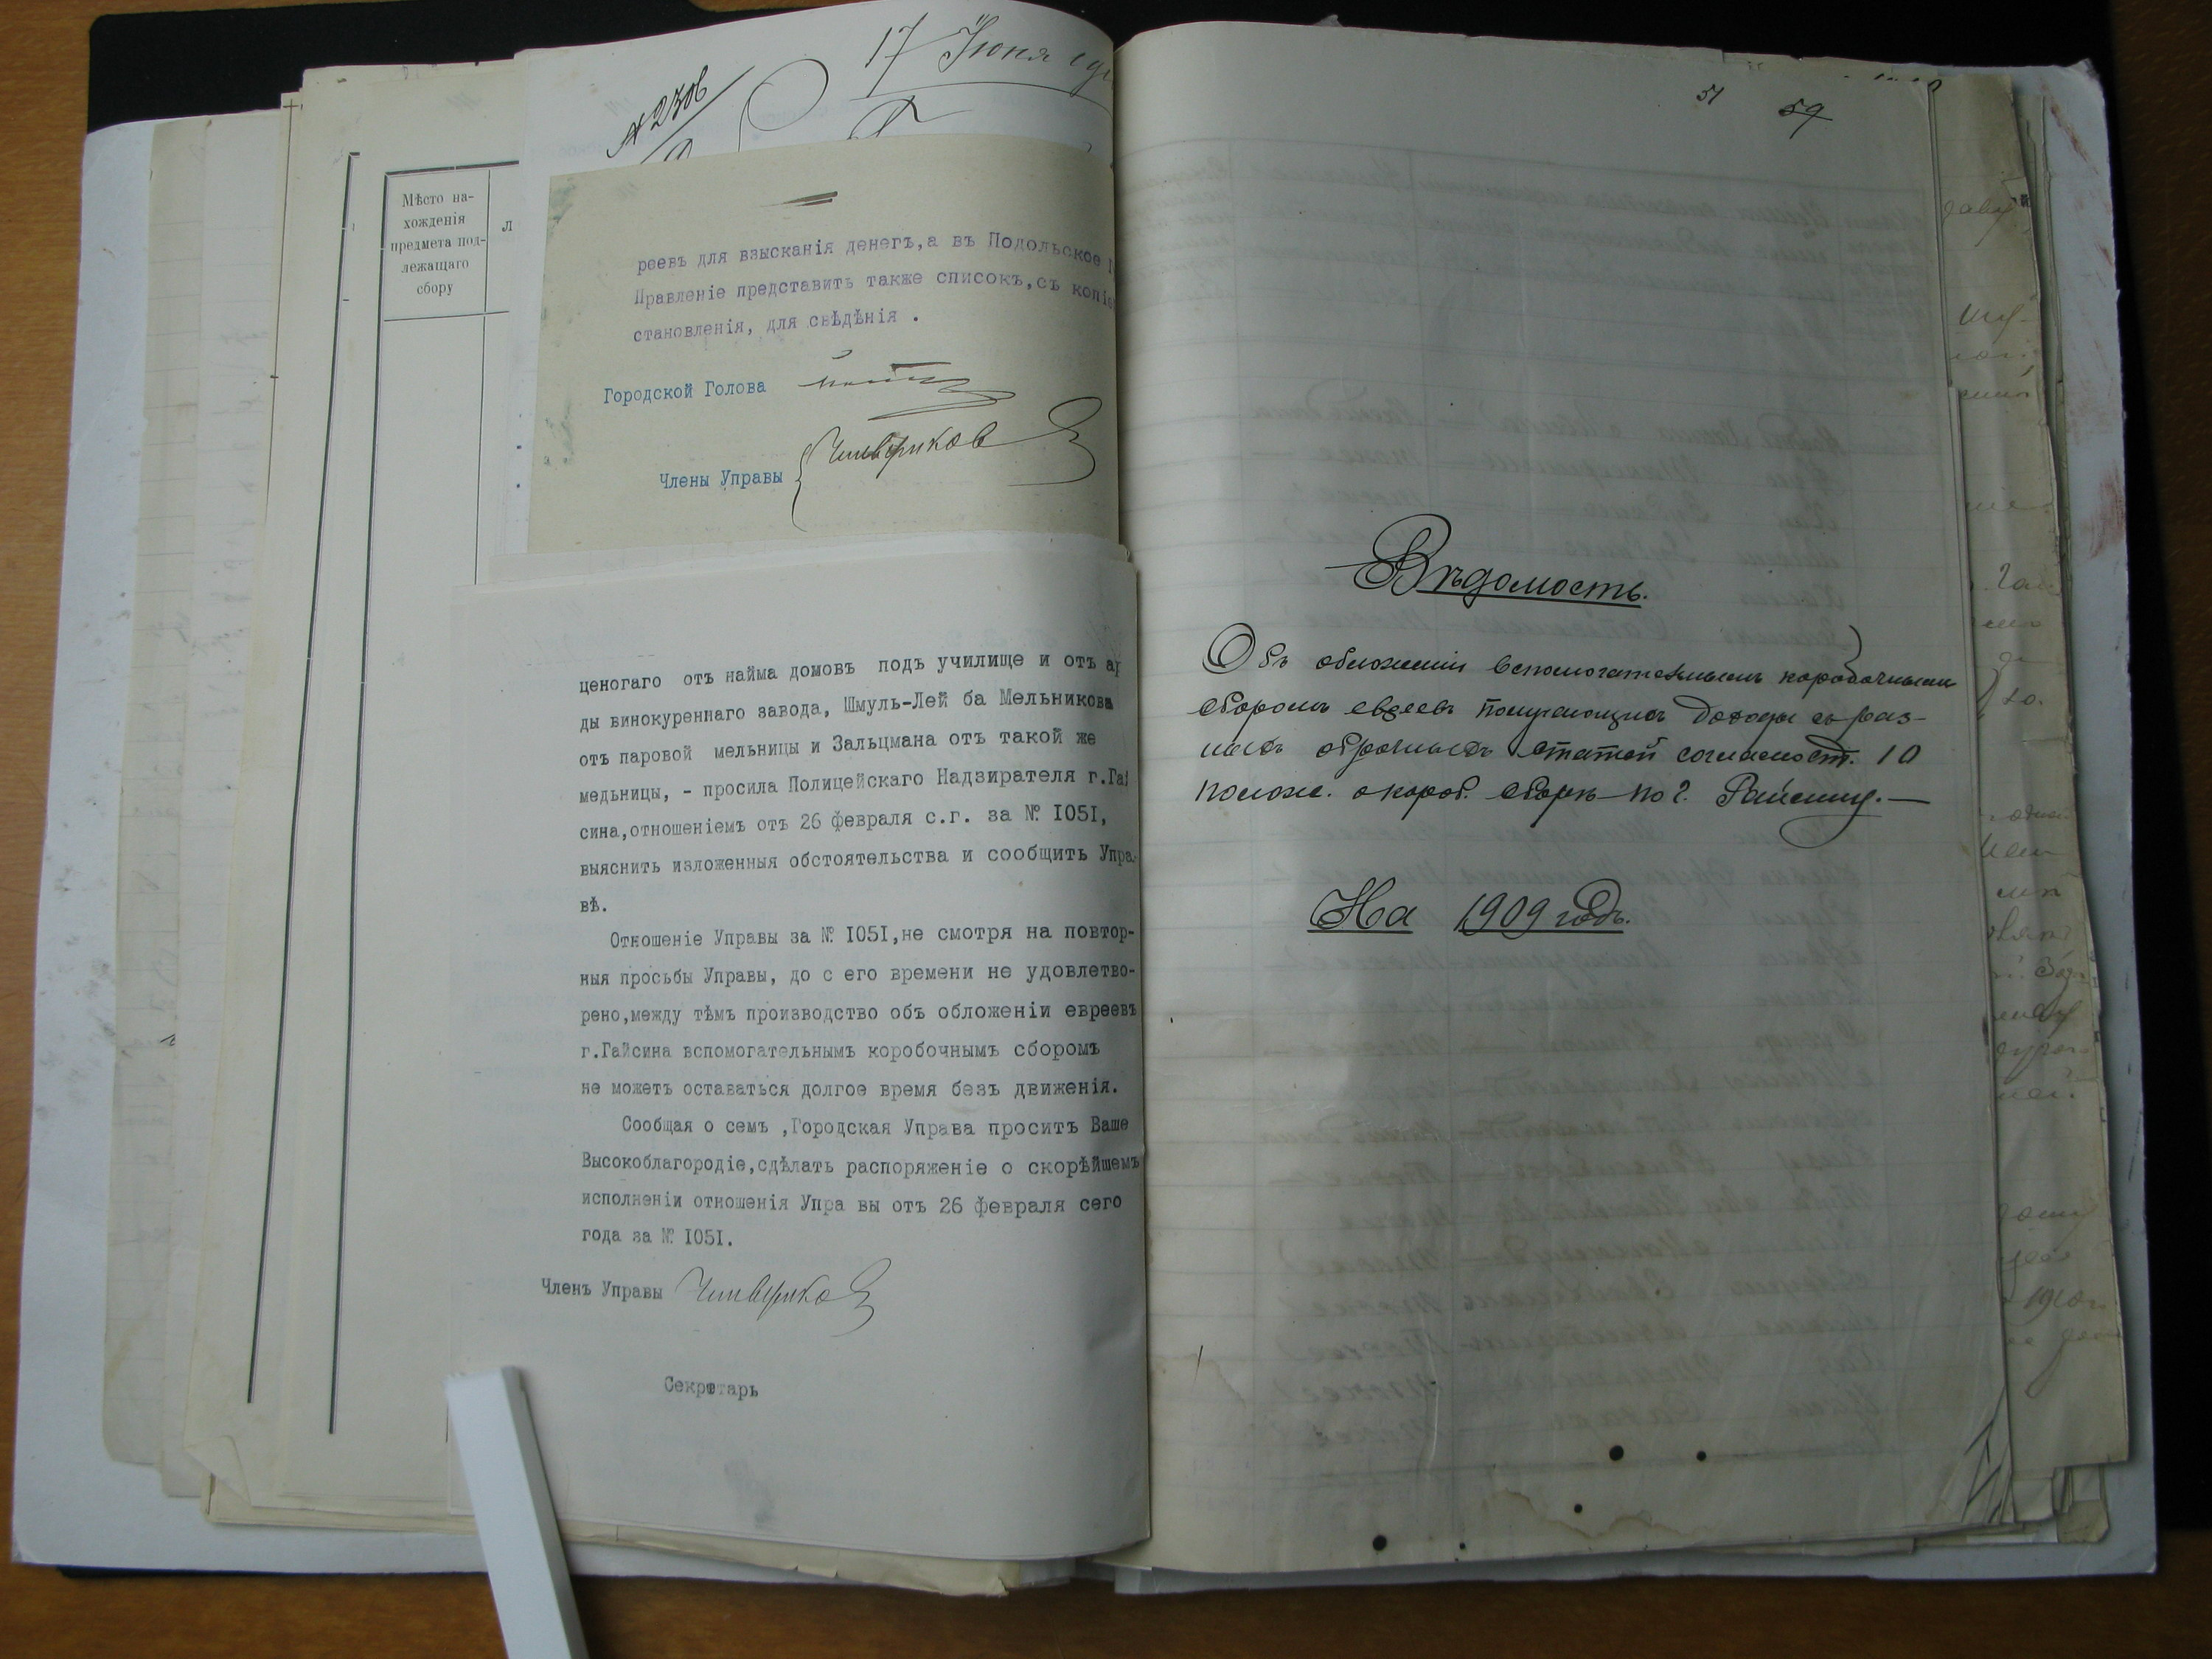 17 Юня
№ 2306
Мѣсто на-
хожденія
предмета под-
лежащаго
сбору
Л
реевъ для взысканія денегъ,а въ Подольское
Правленіе представить также списокъ,съ копіе
становленія, для свѣдѣнія .
Городской Голова
Члены Управы Чивериков
ценогаго отъ найма домовъ подъ училище и отъ ар
ды винокуреннаго завода, Шмуль-Лей ба Мельникова
отъ паровой мельницы и Зальцмана отъ такой же
медьницы, - просила Полицейскаго Надзирателя г.Гай
сина,отношеніемъ отъ 26 февраля с.г. за № I05I,
выяснить изложенныя обстоятельства и сообщить Упра-
вѣ.
Отношеніе Управы за № I05I,не смотря на повтор-
ныя просьбы Управы, до с его времени не удовлетво-
рено,между тѣмъ производство объ обложеніи евреевъ
г.Гайсина вспомогательнымъ коробочнымъ сборомъ
не можетъ оставаться долгое время безъ движенія.
Сообщая о семъ ,Городская Управа проситъ Ваше
Высокоблагородіе,сдѣлать распоряженіе о скорѣйшемъ
исполненіи отношенія Упра вы отъ 26 февраля сего
года за № I05I.
Членъ Управы Чивериков
Секретарь
51 59
Вѣдомость.
Объ обложеніи вспомогательнымъ коробочнымъ
сборомъ евреевъ получающихъ доходы съ раз-
ныхъ оброчныхъ статей согласно ст. 10
полож. о короб. сборѣ по г. Гайсину.—
На 1909 годъ.